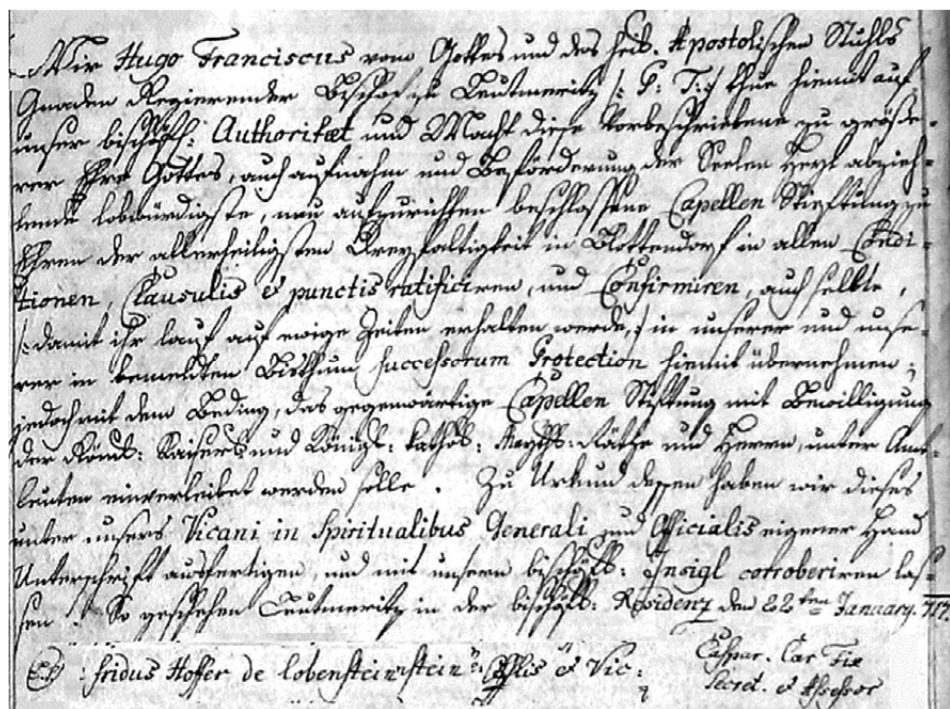 Wir Hugo Franciscus von Gottes und des heil. Apostolischen Stuhls
Gnaden Regierender Bischof zu Leutmeritz /: P: T: / thue hiemit auß
unser bischöfl: Authoritæt und Macht diese vorbeschriebene zu größe-
rer Ehre Gottes, auch aufnahm und Beförderung der Seelen Heyl abzieh-
lende lobwürdigste, neu aufzurichten beschlossene Capellen Stiefftung zu
Ehren der allerheiligsten Dreyfaltigkeit in Blottendorf in allen Condi-
tionen, Clausulis & punctis ratificiren, und Confirmiren, auch selbte,
/: damit ihr lauf auf ewige Zeiten erhalten werde, :/ in unserer und unse-
rer in bemeldten Bisthum successorum Protection hiemit übernehmen;
jedoch mit dem Beding, das gegenwärtige Capellen Stiftung mit Bewilligung
der Röm: Kaiserl: und Königl: Cathol: Räthe und Herrn, unter
leuten einverleibet werden solle. Zu Urkund dessen haben wir dieses
unter unsers Vicarii in Spiritualibus Generali und Officialis eigener Hand
Unterschrift ausfertigen, und mit unsern bischöfl: Insigl cotroberiren las-
sen. So geschehen Leutmeritz in der bischöfl: Residenz den 22ten January.
fridus Hoffer de Lobenstein & Vic:
Caspar. Car
Secret. & Assessor